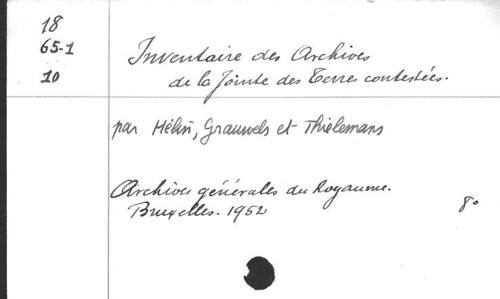 18
65-1
10
Inventaire des Archives
de la Jointe des Terres contestées.
par Hélin, Grauwels et Thielemans
Archives générales du Royaume.
Bruxelles. 1952
8°